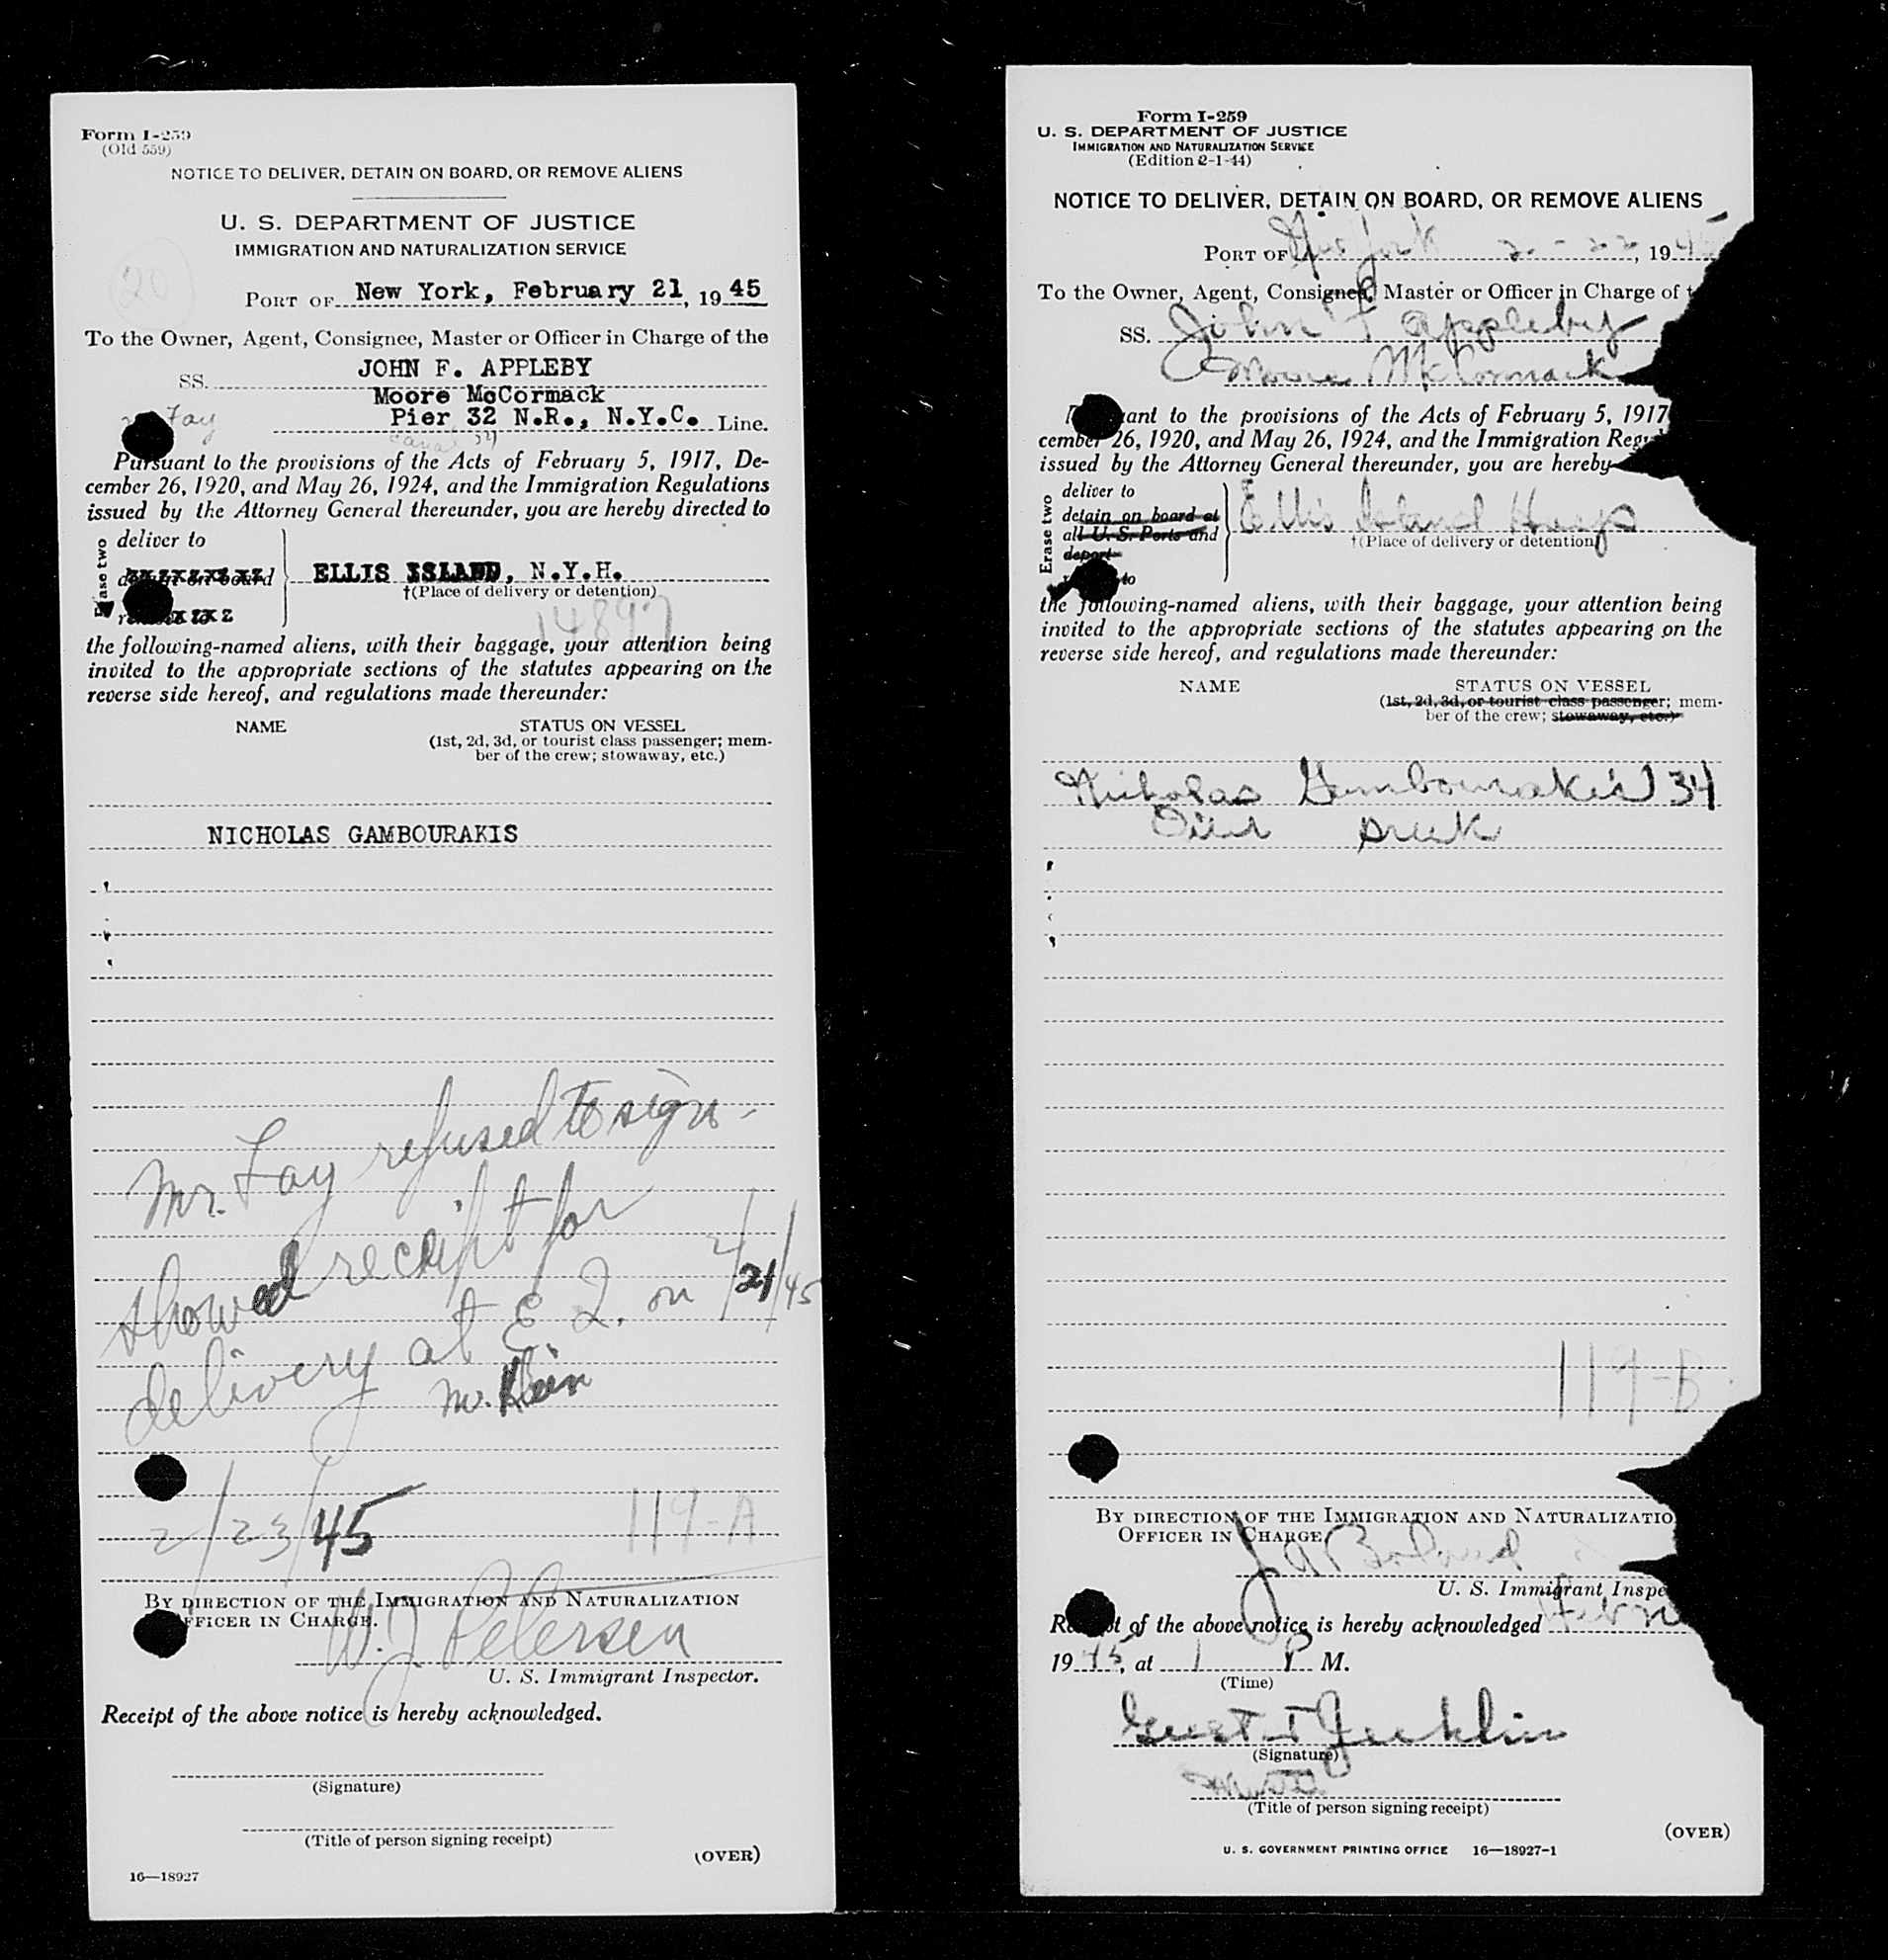 Form I-259
(Old 559)
NOTICE TO DELIVER, DETAIN ON BOARD, OR REMOVE ALIENS
U. S. DEPARTMENT OF JUSTICE
IMMIGRATION AND NATURALIZATION SERVICE
20
PORT OF New York, February 21, 19 45
To the Owner, Agent, Consignee, Master or Officer in Charge of the
SS. JOHN F. APPLEBY
Moore McCormack
Fay Pier 32 N.R., N.Y.C. Line.
Pursuant to the provisions of the Acts of February 5, 1917, De-
cember 26, 1920, and May 26, 1924, and the Immigration Regulations
issued by the Attorney General thereunder, you are hereby directed to
Erase two
deliver to
ELLIS ISLAND, N.Y.H.
†(Place of delivery or detention)
14897
the following-named aliens, with their baggage, your attention being
invited to the appropriate sections of the statutes appearing on the
reverse side hereof, and regulations made thereunder:
NAME STATUS ON VESSEL
(1st, 2d, 3d, or tourist class passenger; mem-
ber of the crew; stowaway, etc.)
NICHOLAS GAMBOURAKIS
Mr. Fay refused to sign -
showed receipt for
delivery at E I. on 2/21/45
2/23/45 119-A
BY DIRECTION OF THE IMMIGRATION AND NATURALIZATION
OFFICER IN CHARGE.
W. J. Petersen
U. S. Immigrant Inspector.
Receipt of the above notice is hereby acknowledged.
(Signature)
(Title of person signing receipt)
(OVER)
16—18927
Form I-259
U. S. DEPARTMENT OF JUSTICE
IMMIGRATION AND NATURALIZATION SERVICE
(Edition 2-1-44)
NOTICE TO DELIVER, DETAIN ON BOARD, OR REMOVE ALIENS
PORT OF New York 2-22, 19 45
To the Owner, Agent, Consignee, Master or Officer in Charge of
SS. John F Appleby
Moore McCormack
Pursuant to the provisions of the Acts of February 5, 1917
cember 26, 1920, and May 26, 1924, and the Immigration Regu
issued by the Attorney General thereunder, you are hereby
Erase two
deliver to
detain on board at
all U. S. Ports and
deport
to
Ellis Island Hosp
†(Place of delivery or detention)
the following-named aliens, with their baggage, your attention being
invited to the appropriate sections of the statutes appearing on the
reverse side hereof, and regulations made thereunder:
NAME STATUS ON VESSEL
(1st, 2d, 3d, or tourist class passenger; mem-
ber of the crew; stowaway, etc.)
Nicholas Gambourakis 34
Greek
119-B
BY DIRECTION OF THE IMMIGRATION AND NATURALIZATIO
OFFICER IN CHARGE
U. S. Immigrant Inspe
Receipt of the above notice is hereby acknowledged
19 45, at 1 P M.
(Time)
(Signature)
(Title of person signing receipt)
(OVER)
U. S. GOVERNMENT PRINTING OFFICE 16—18927-1